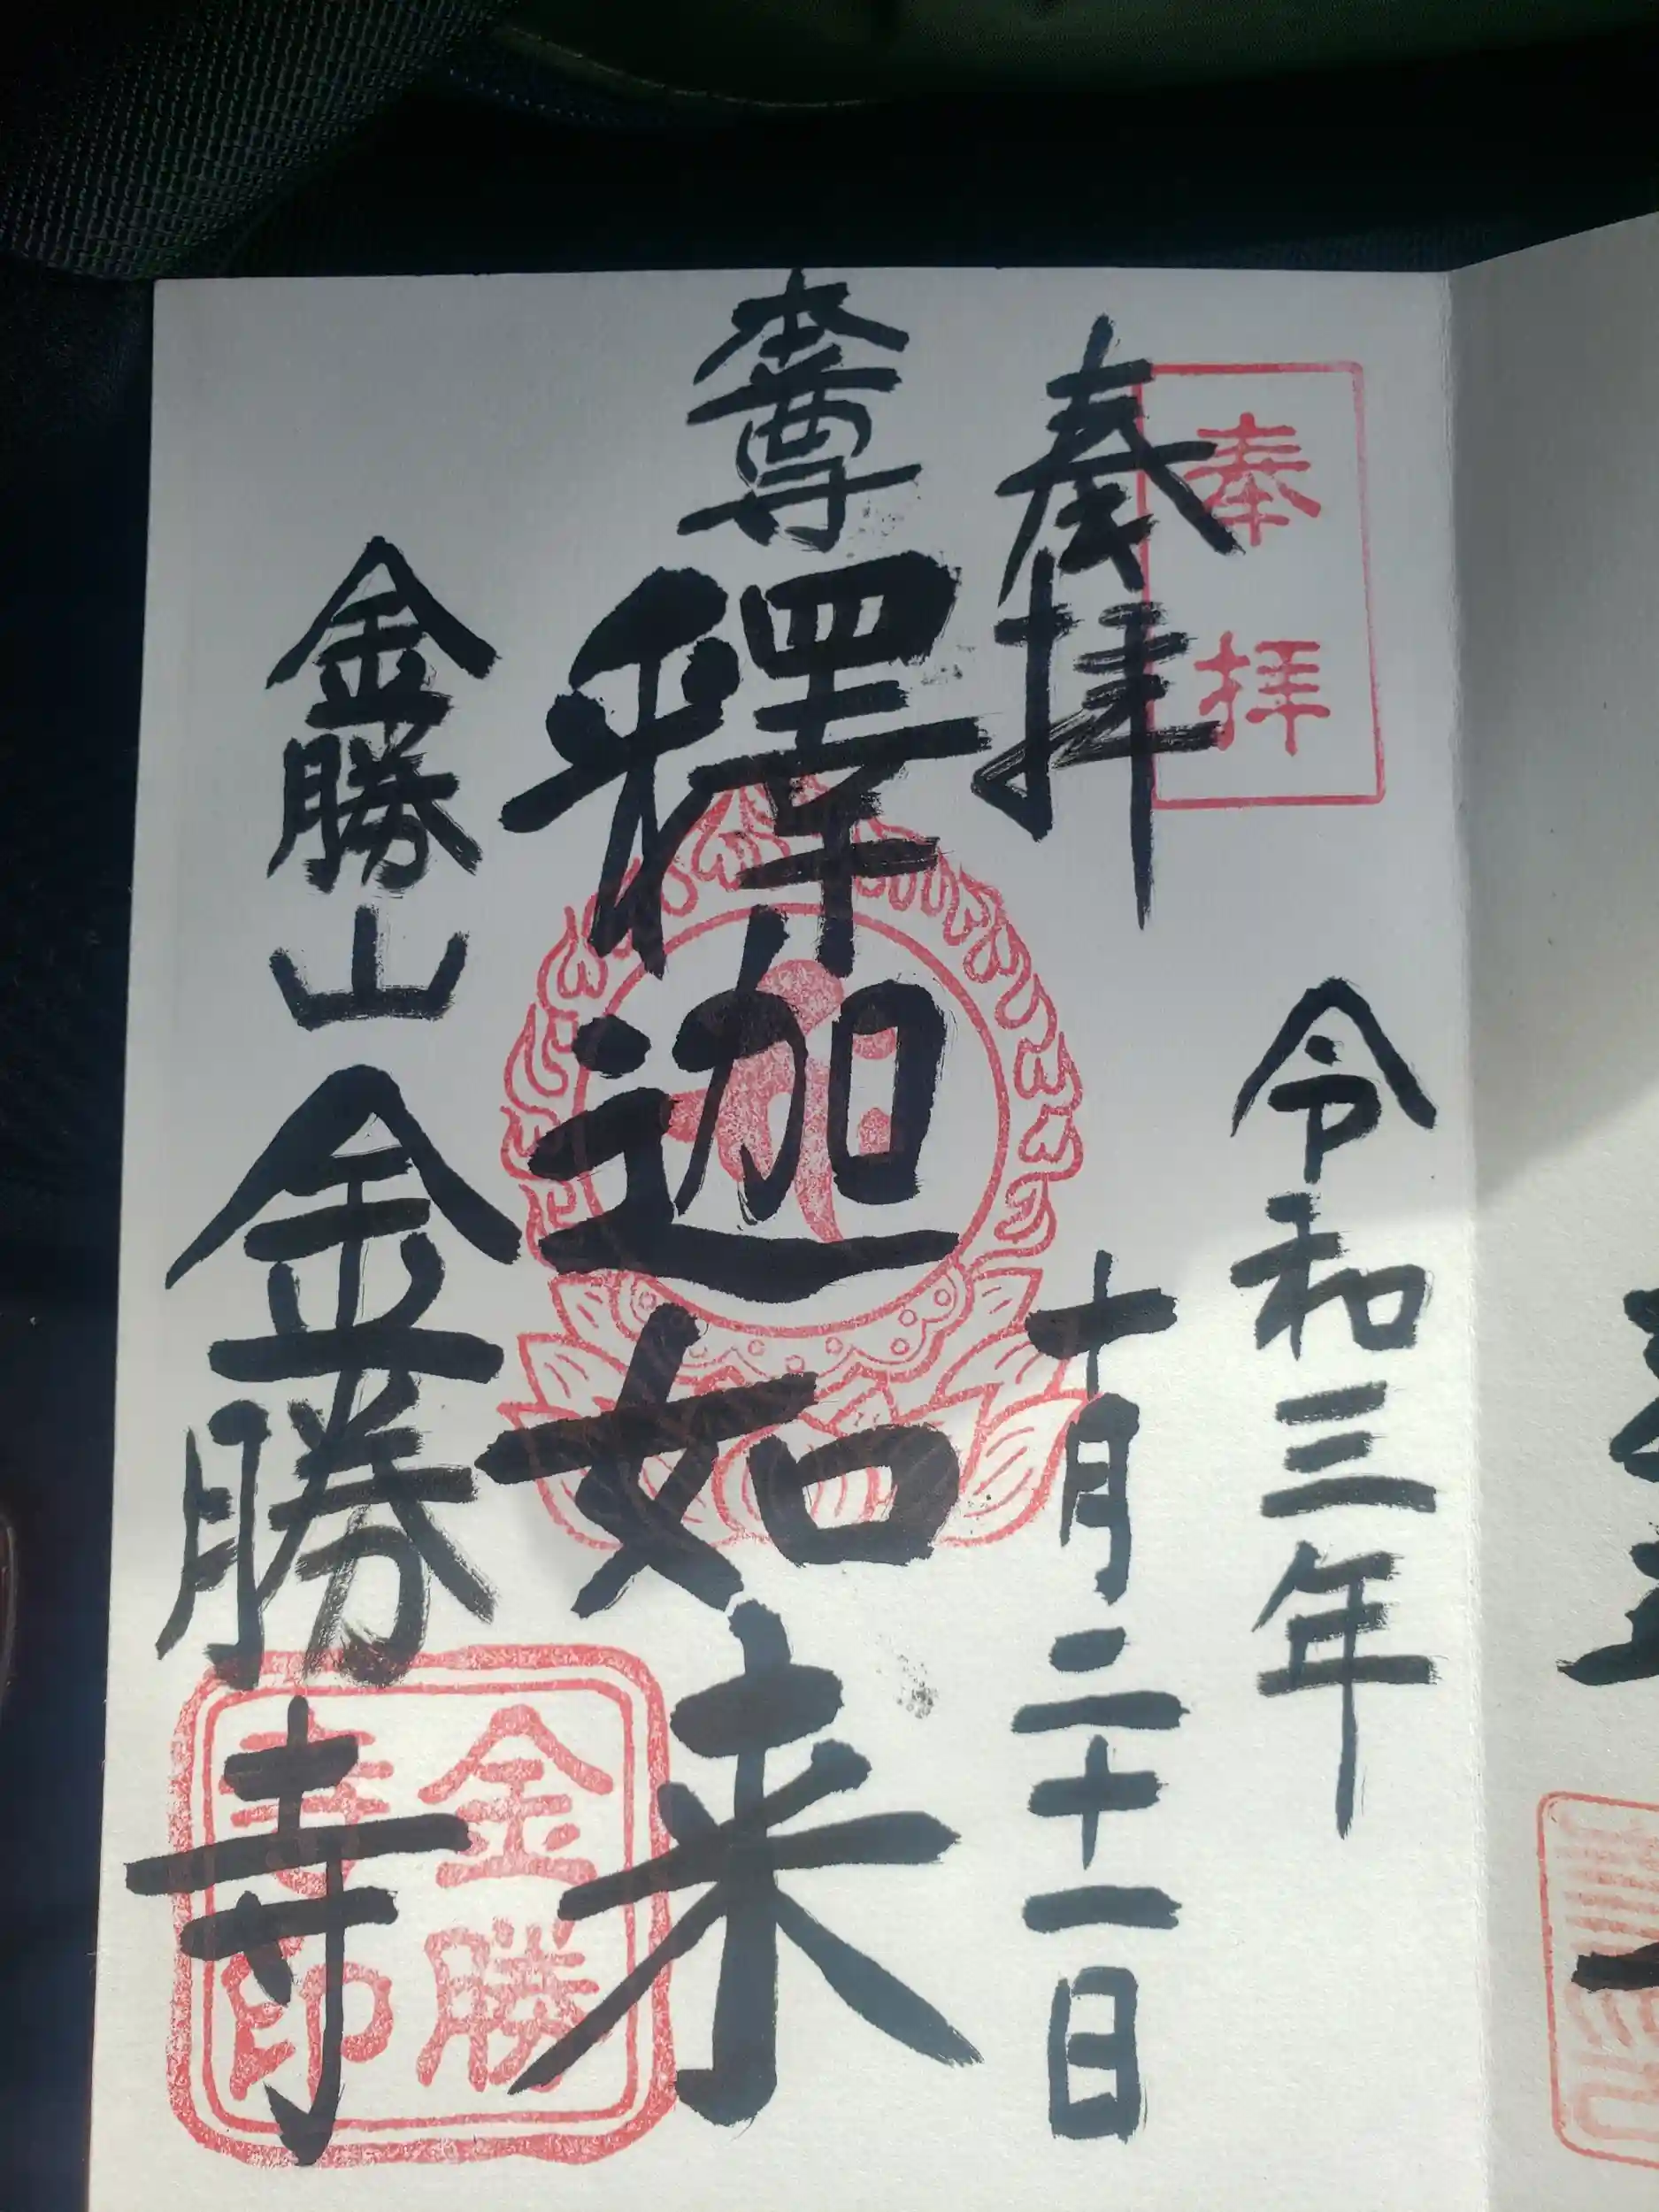 奉拝
令和三年
奉拝
十月二十一日
本尊
釋迦如来
金勝山
金勝寺
金勝
寺印